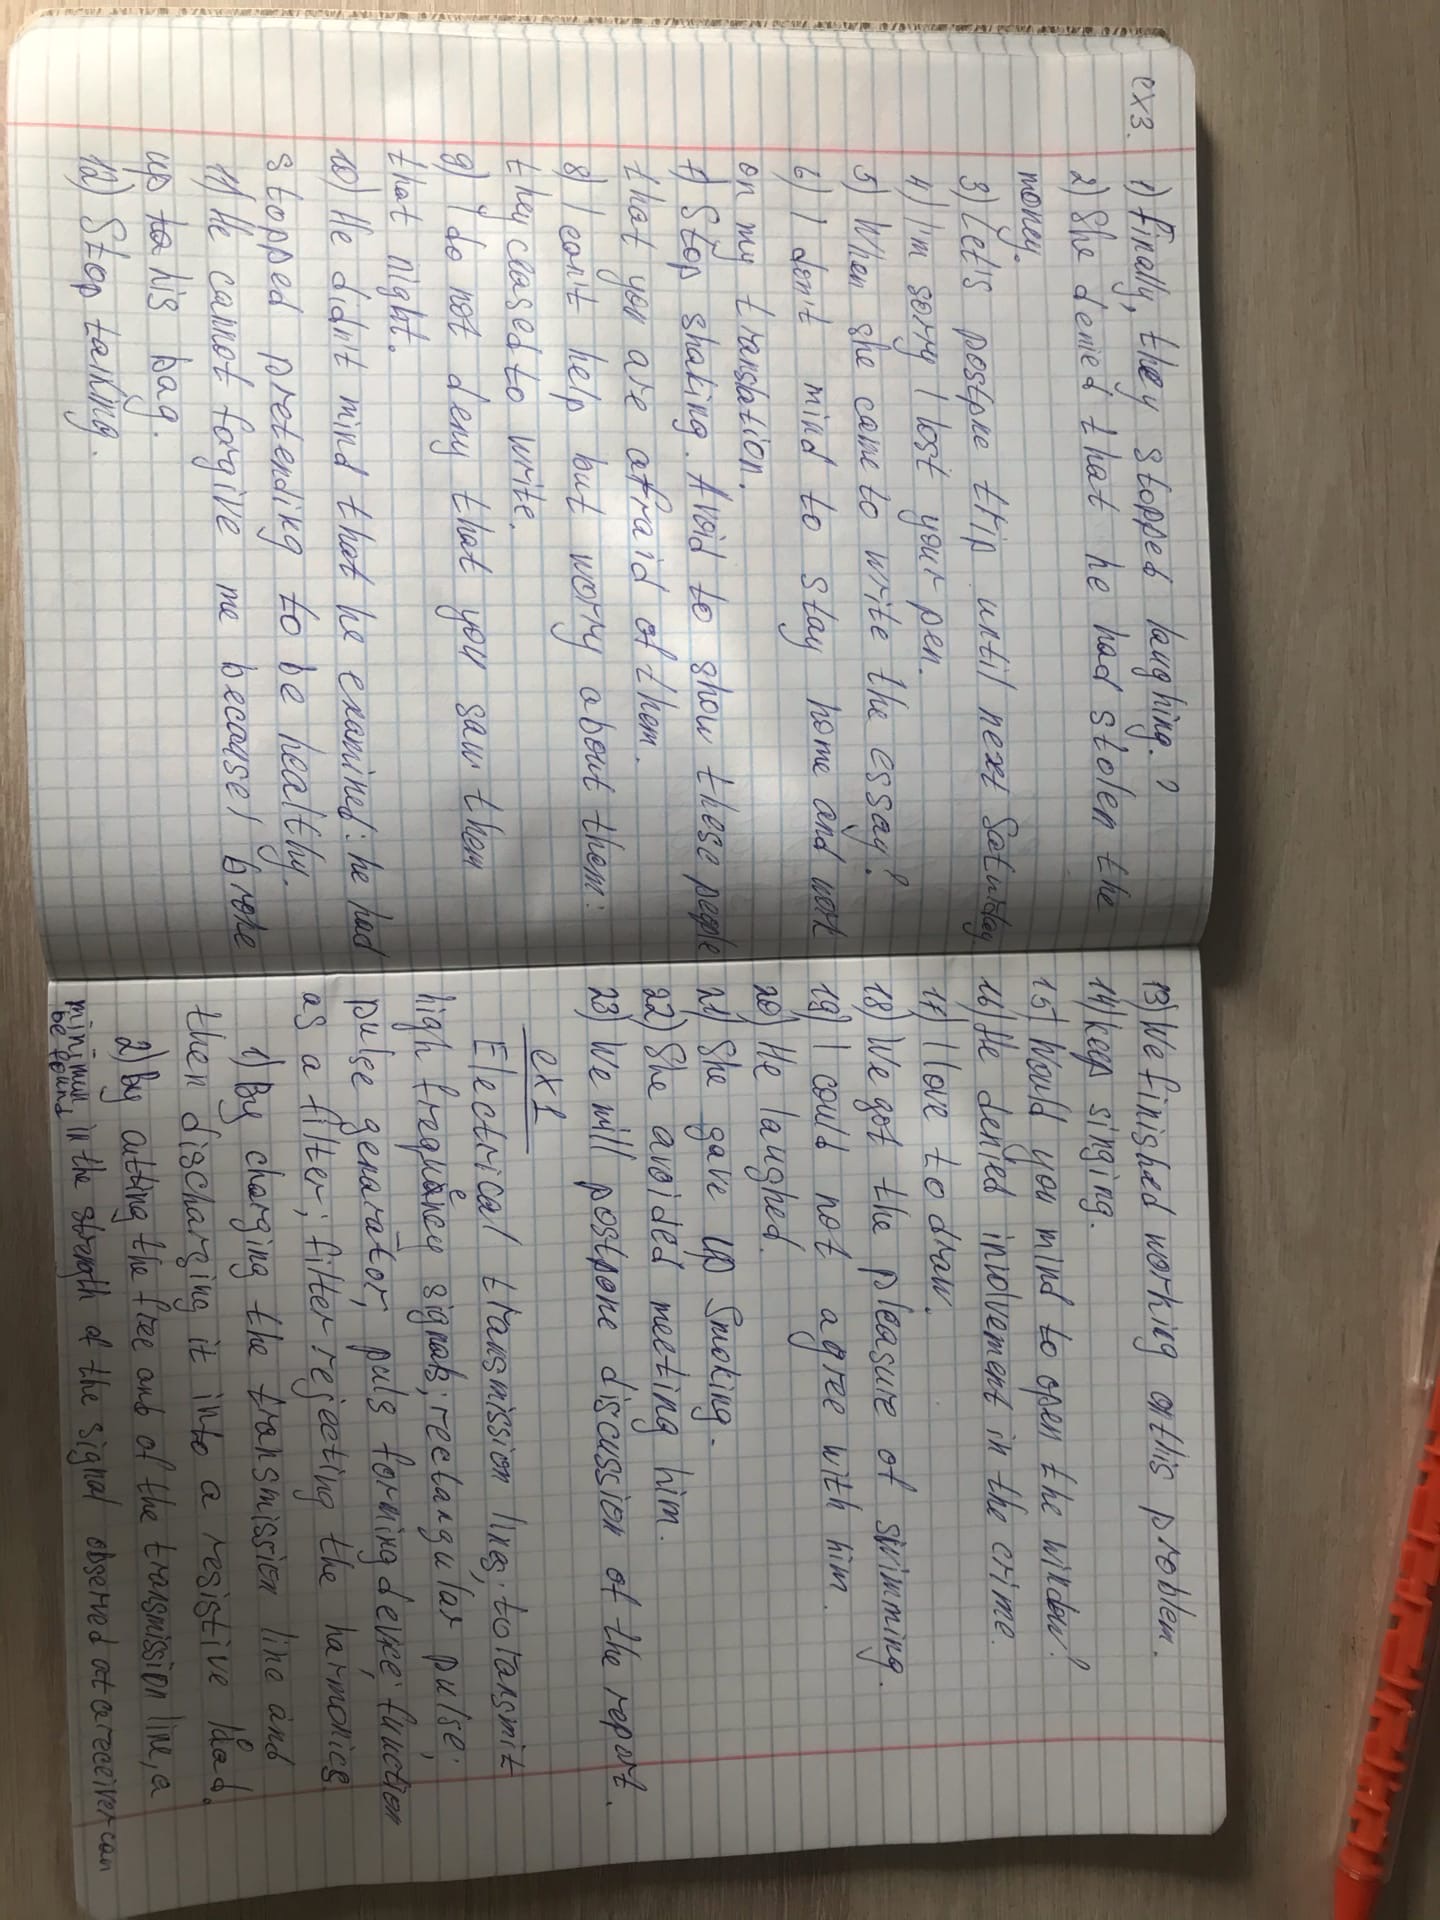 ex3.
1) Finally, they stopped laughing. ?
2) She denied that he had stolen the
money.
3) Let's postpne trip until next Saturday
4) I'm sorry I lost your pen.
5) When she came to write the essay?
6) I don't mind to stay home and work
on my translation.
7) Stop shaking. Avoid to show these people
that you are afraid of them.
8) I can't help but worry about them:
they ceased to write.
9) I do not deny that you saw them
that night.
10) He didn't mind that he examined: he had
stopped pretending to be healthy.
11) He cannot forgive me because I broke
up to his bag.
12) Stop talking.
13) We finished working on this problem.
14) Keep singing.
15) Would you mind to open the window?
16) He denied involvement in the crime.
17) I love to draw.
18) We got the pleasure of swimming.
19) I could not agree with him.
20) He laughed.
21) She gave up smoking.
22) She avoided meeting him.
23) We will postpone discussion of the report.
ex1
Electrical transmission ling; to transmit
high frequency signals; rectangular pulse;
pulse generator; puls forming device; function
as a filter; filter rejecting the harmonics.
1) By charging the transmission line and
then discharging it into a resistive load.
2) By cutting the free and of the transmission line, a
minimum in the strength of the signal observed at a receiver can
be found